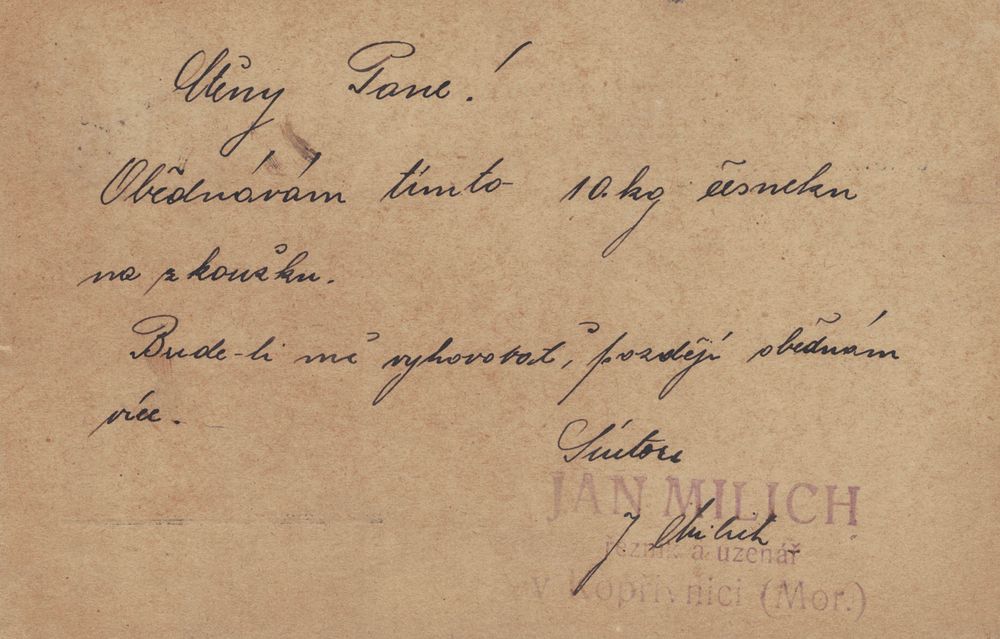 Ctěný Pane!
Obědnávám tímto 10.kg česneku
na zkoušku.
Bude-li mě vyhovovat, pozdějí obědnám
více.
S úctou
JAN MILICH
J Milich
řezník a uzenář
v Kopřivnici (Mor.)